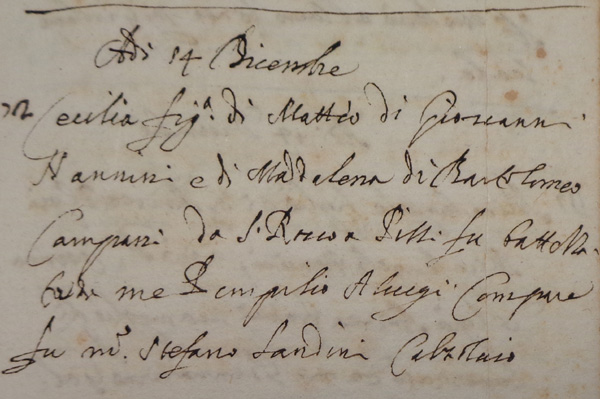 Adi 14 Dicembre
Cecilia fig.a di Matteo di Giovanni
Nannini e di Madalena di Bartolomeo
Campani da S. Rocco a Pilli fu batt
da me Pompilio Aluigi Compare
fu m.o Stefano Landini Calzolaio